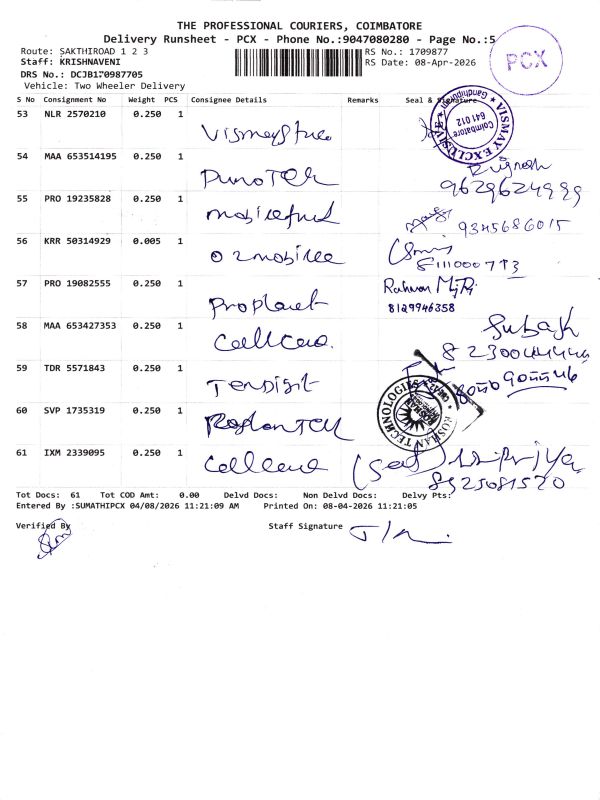 THE PROFESSIONAL COURIERS, COIMBATORE
Delivery Runsheet - PCX - Phone No.:9047080280 - Page No.:5
Route: SAKTHIROAD 1 2 3
RS No.: 1709877
Staff: KRISHNAVENI
RS Date: 08-Apr-2026
DRS No.: DCJB170987705
Vehicle: Two Wheeler Delivery
PCX
S No Consignment No Weight PCS Consignee Details Remarks Seal & Signature
53 NLR 2570210 0.250 1
VISMAY EXCLUSIVE
Gandhipuram
Coimbatore
641 012
54 MAA 653514195 0.250 1
9629624999
55 PRO 19235828 0.250 1
9345686015
56 KRR 50314929 0.005 1 O2mobilee
8111000773
57 PRO 19082555 0.250 1 Proplanet
8129946358
58 MAA 653427353 0.250 1 Cellcare
Subash
59 TDR 5571843 0.250 1 Tendigit
60 SVP 1735319 0.250 1
ROSHAN TECHNOLOGIES
61 IXM 2339095 0.250 1 Cellcare
8925081520
Tot Docs: 61 Tot COD Amt: 0.00 Delvd Docs: Non Delvd Docs: Delvy Pts:
Entered By :SUMATHIPCX 04/08/2026 11:21:09 AM Printed On: 08-04-2026 11:21:05
Verified By
Staff Signature